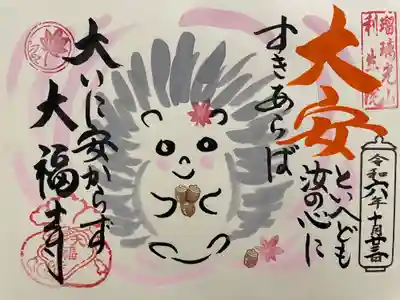 大安
といへども
汝の心に
すきあらば
大いに安からず
大福寺
令和六年十月廿三日
瑠璃光山